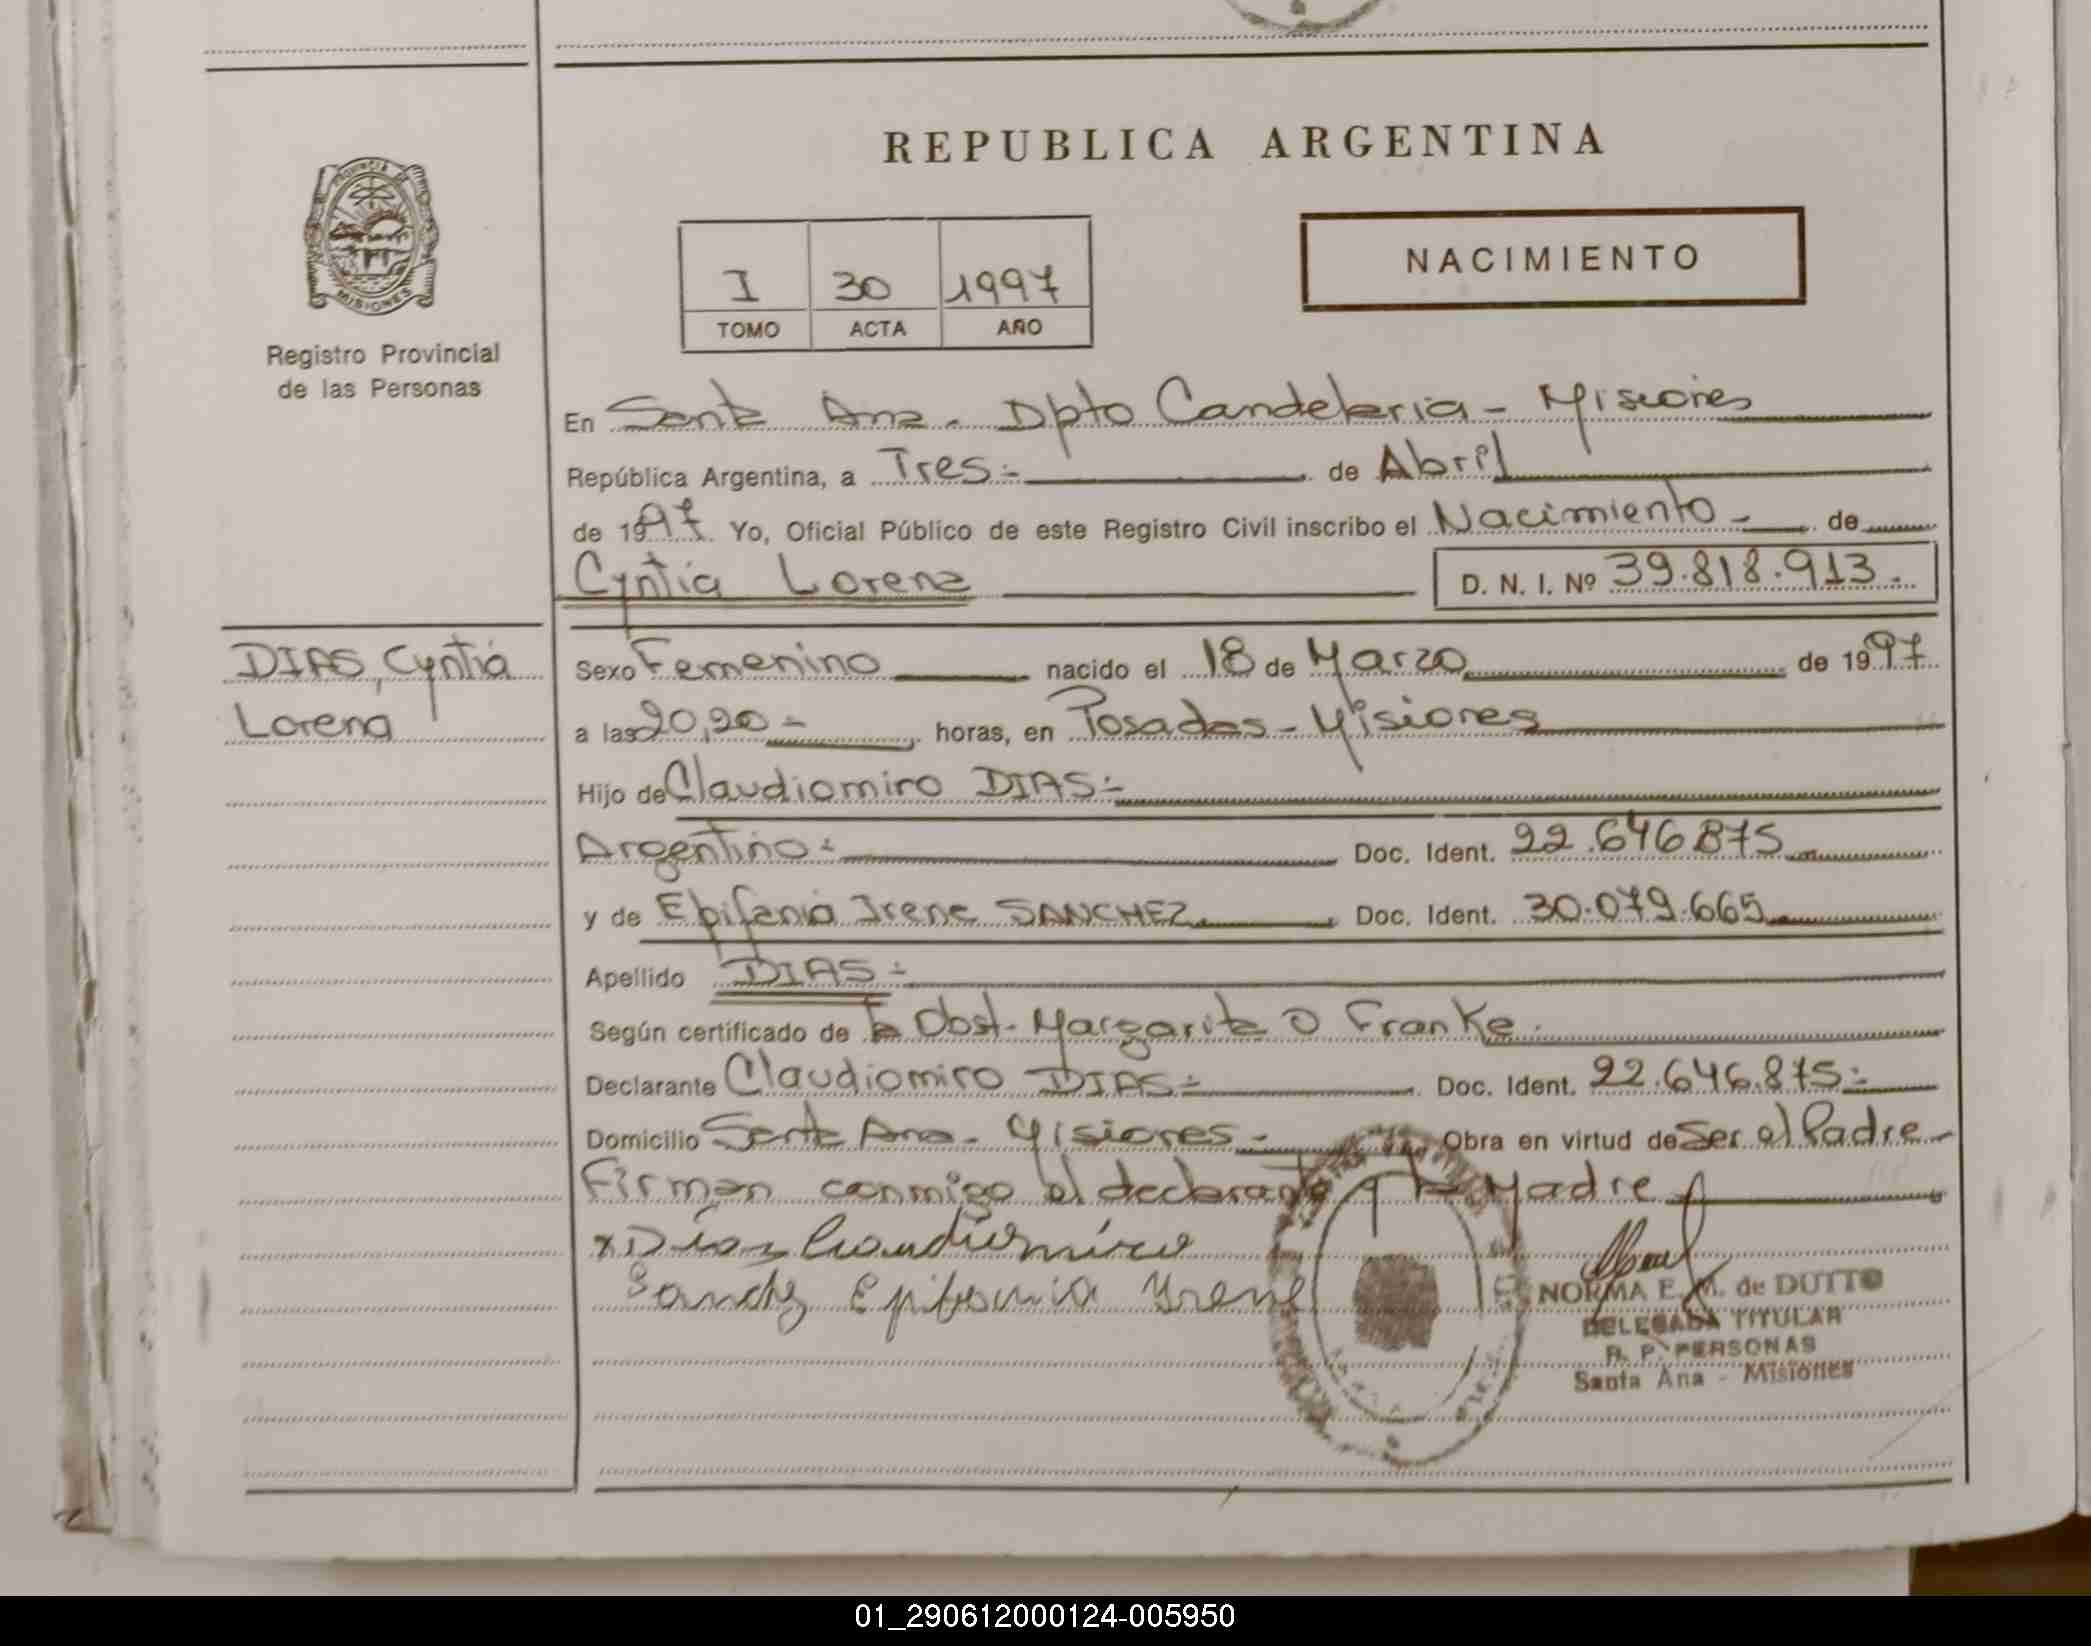 REPUBLICA ARGENTINA
PROVINCIA DE
MISIONES
Registro Provincial
de las Personas
I 30 1997
TOMO ACTA AÑO
NACIMIENTO
En Santa Ana - Dpto Candelaria - Misiones
República Argentina, a Tres de Abril
de 1997 Yo, Oficial Público de este Registro Civil inscribo el Nacimiento - de
Cyntia Lorena D. N. I. Nº 39.818.913.
DIAS, Cyntia
Lorena
Sexo Femenino nacido el 18 de Marzo de 1997
a las 20,20 - horas, en Posadas - Misiones
Hijo de Claudiomiro DIAS
Argentino Doc. Ident. 22.646.875
y de Epifania Irene SANCHEZ Doc. Ident. 30.079.665
Apellido DIAS
Según certificado de la Obst. Margarita O Franke
Declarante Claudiomiro DIAS Doc. Ident. 22.646.875
Domicilio Santa Ana - Misiones - Obra en virtud de Ser el Padre
Firman conmigo el declarante y la Madre
x Dias Claudiomiro
Sanchz Epifania Yrene
NORMA E. M. de DUTTO
DELEGADA TITULAR
R. P. PERSONAS
Santa Ana - Misiones
01_290612000124-005950